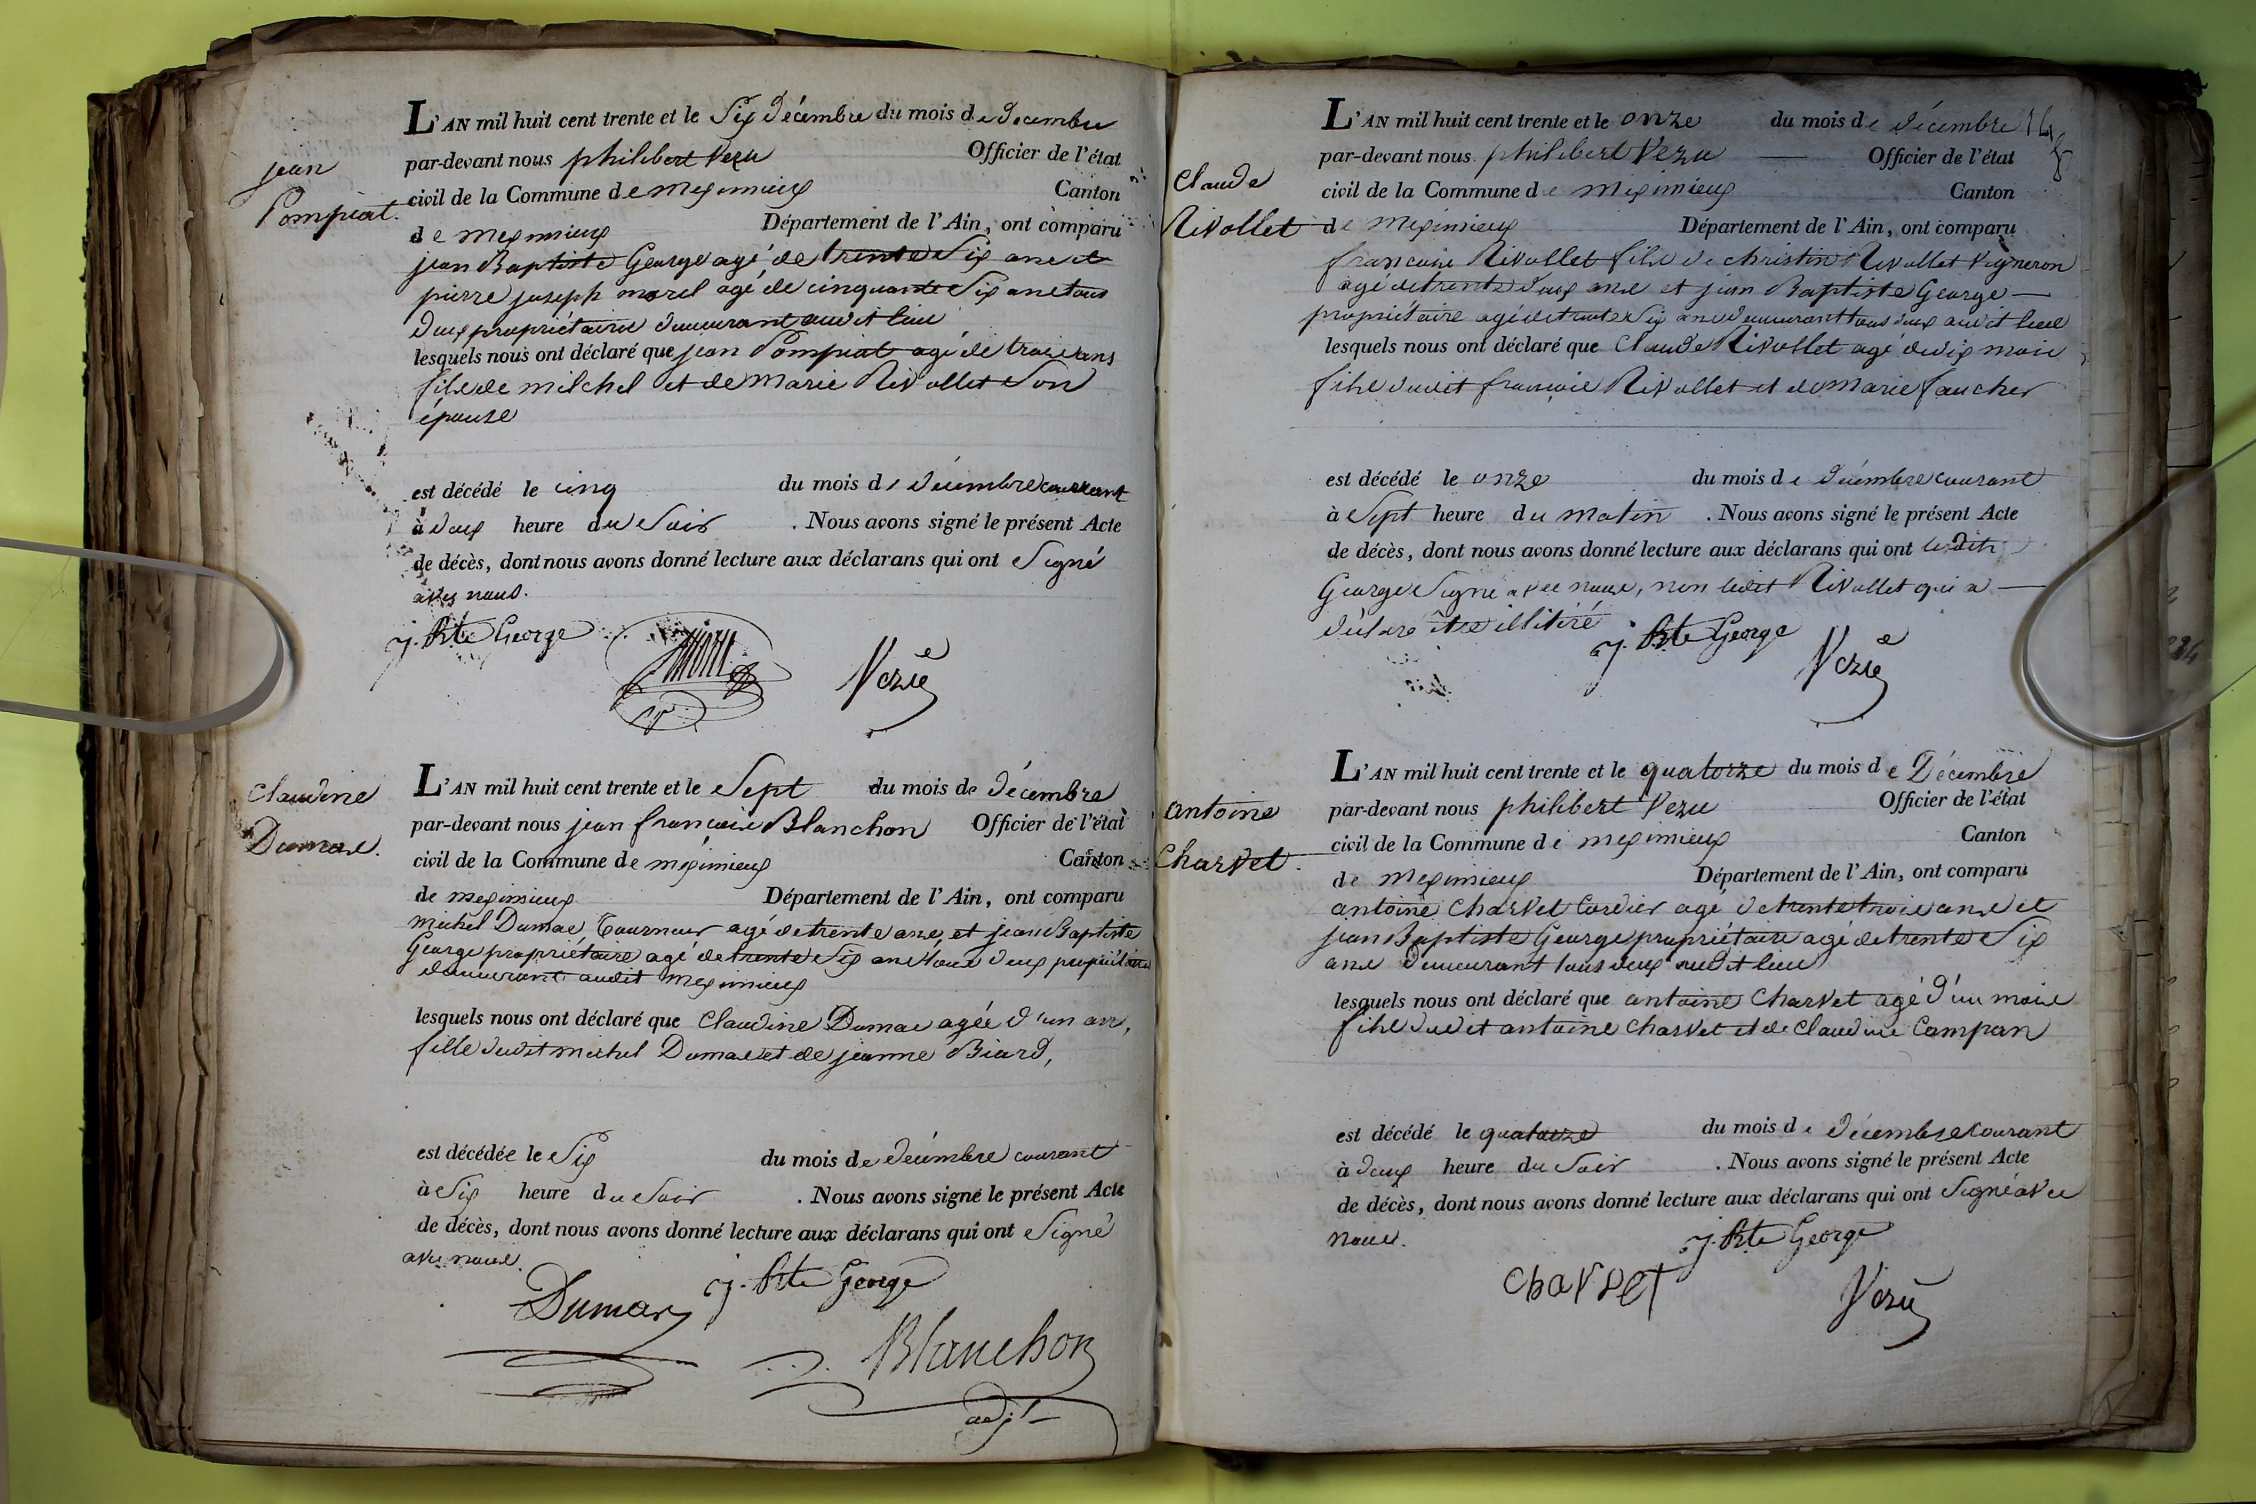 jean
Pompiat.
L'AN mil huit cent trente et le Six décembre du mois de décembre
par-devant nous philibert Vezu Officier de l'état
civil de la Commune de meximieux Canton
de meximieux Département de l'Ain, ont comparu
jean Baptiste George agé de trente Six ans et
pierre joseph morel agé de cinquante Six ans tous
deux propriétaires demeurant audit lieu
lesquels nous ont déclaré que jean Pompiat agé de
fils de milchel et de marie Rivollet Son
épouse
est décédé le cinq du mois de décembre courant
à deux heure du Soir . Nous avons signé le présent Acte
de décès, dont nous avons donné lecture aux déclarans qui ont Signé
avec nous.
j. Bte George
Vezu
Claudine
Dumas.
L'AN mil huit cent trente et le Sept du mois de décembre
par-devant nous jean françois Blanchon Officier de l'état
civil de la Commune de meximieux Canton
de meximieux Département de l'Ain, ont comparu
michel Dumas Tourneur agé de trente ans, et jean Baptiste
George propriétaire agé de trente Six ans tous deux propriétaires
demeurant audit meximieux
lesquels nous ont déclaré que Claudine Dumas agée d'un an,
fille dudit michel Dumas et de jeanne Biard,
est décédée le Six du mois de décembre courant
à Six heure du Soir . Nous avons signé le présent Acte
de décès, dont nous avons donné lecture aux déclarans qui ont Signé
avec nous.
Dumas j. Bte George
Blanchon
adjt
Claude
Rivollet
L'AN mil huit cent trente et le onze du mois de décembre
par-devant nous philibert Vezu Officier de l'état
civil de la Commune de meximieux Canton
de meximieux Département de l'Ain, ont comparu
françois Rivollet fils de christin Rivollet Vigneron
agé de trente deux ans et jean Baptiste George
propriétaire agé de trente Six ans demeurant tous deux audit lieu
lesquels nous ont déclaré que Claude Rivollet agé de dix mois
fils dudit françois Rivollet et de marie faucher
est décédé le onze du mois de décembre courant
à Sept heure du matin . Nous avons signé le présent Acte
de décès, dont nous avons donné lecture aux déclarans qui ont ledit
George Signé avec nous, non ledit Rivollet qui a
déclaré être illitéré
j. Bte George
Vezu
antoine
Charvet.
L'AN mil huit cent trente et le quatorze du mois de Décembre
par-devant nous philibert Vezu Officier de l'état
civil de la Commune de meximieux Canton
de meximieux Département de l'Ain, ont comparu
antoine Charvet Cordier agé de trente trois ans et
jean Baptiste George propriétaire agé de trente Six
ans demeurant tous deux audit lieu
lesquels nous ont déclaré que antoine Charvet agé d'un mois
fils dudit antoine Charvet et de Claudine Campan
est décédé le quatorze du mois de décembre courant
à deux heure du Soir . Nous avons signé le présent Acte
de décès, dont nous avons donné lecture aux déclarans qui ont Signé avec
nous.
j. Bte George
charvet
Vezu